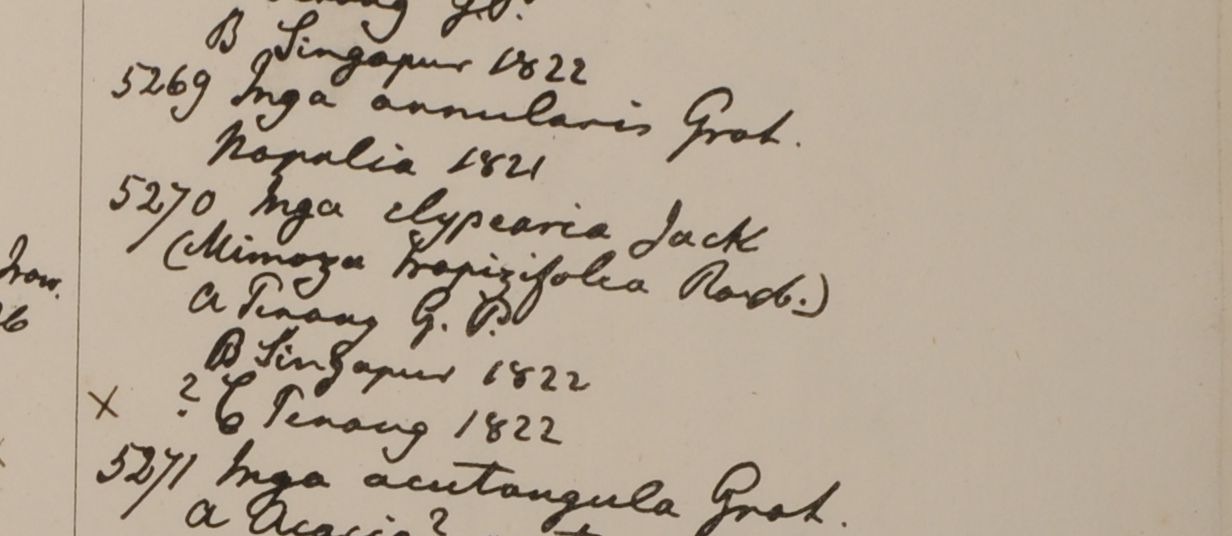 Penang G.P.
B Singapur 1822
5269 Inga annularis Grah.
Napalia 1821
5270 Inga clypearia Jack
(Mimoza trapizifolia Roxb.)
a Penang G. P.
B Singapur 1822
x ? C Penang 1822
5271 Inga acutangula Grah.
a Acacia?